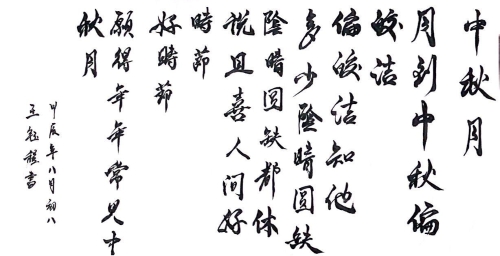 中秋月
月到中秋偏
皎洁
偏皎洁知他
多少陰晴圆缺
陰晴圆缺都休
说且喜人间好
時節
好時節
願得年年常见中
秋月
甲辰年八月初八
王 書